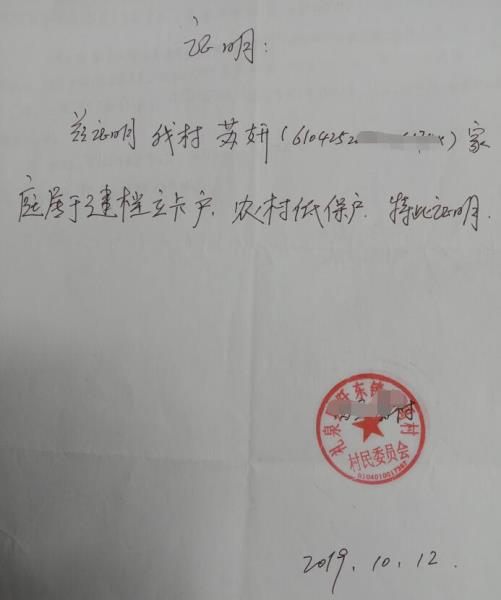 证明：
兹证明 我村 苏妍（6104252
）家
庭属于建档立卡户、农村低保户. 特此证明.
礼泉 东 村
村
村民委员会
2019.10.12.